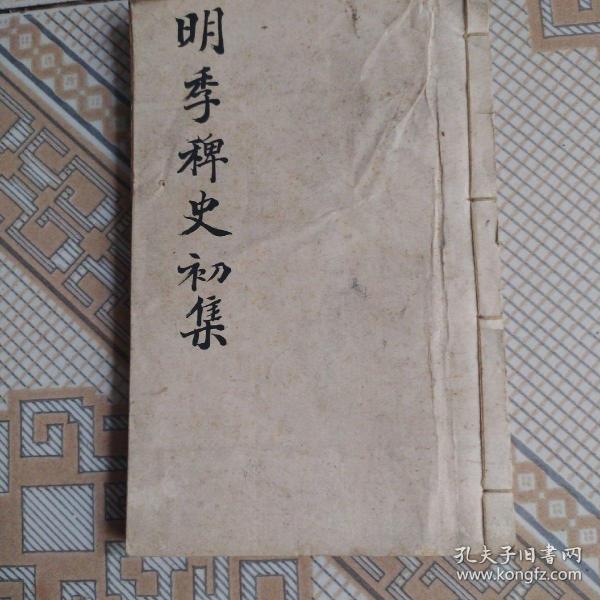 明季稗史初集
孔夫子旧书网
www.kongfz.com